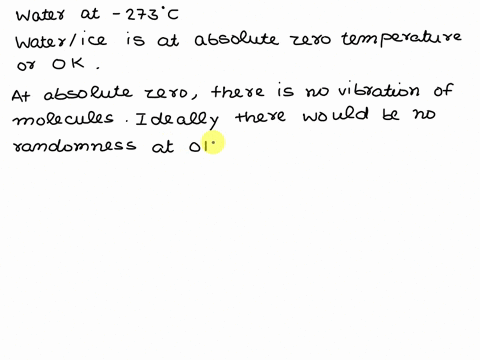 Water at -273°C
Water/ice is at absolute zero temperature
or 0K.
At absolute zero, there is no vibration of
molecules. Ideally there would be no
randomness at 0